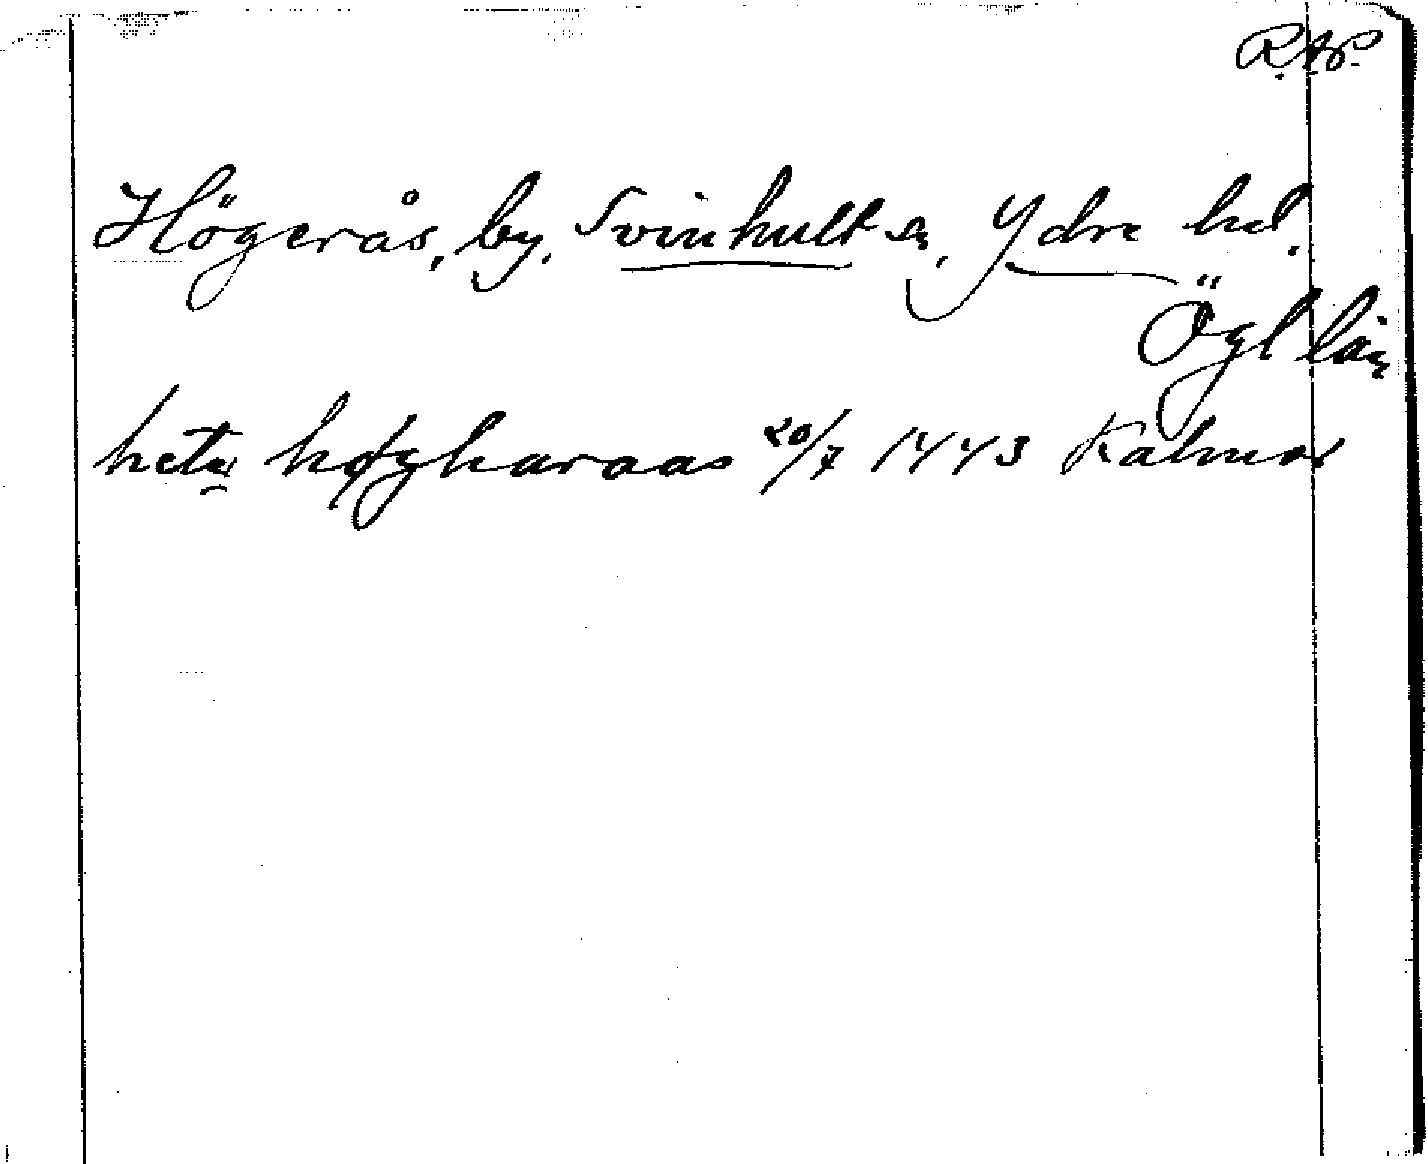 R.A.P.
Högerås, by, Svinhult sn, Ydre hd.
Ögl län
heta høgharaas 20/7 1443 Kalmar